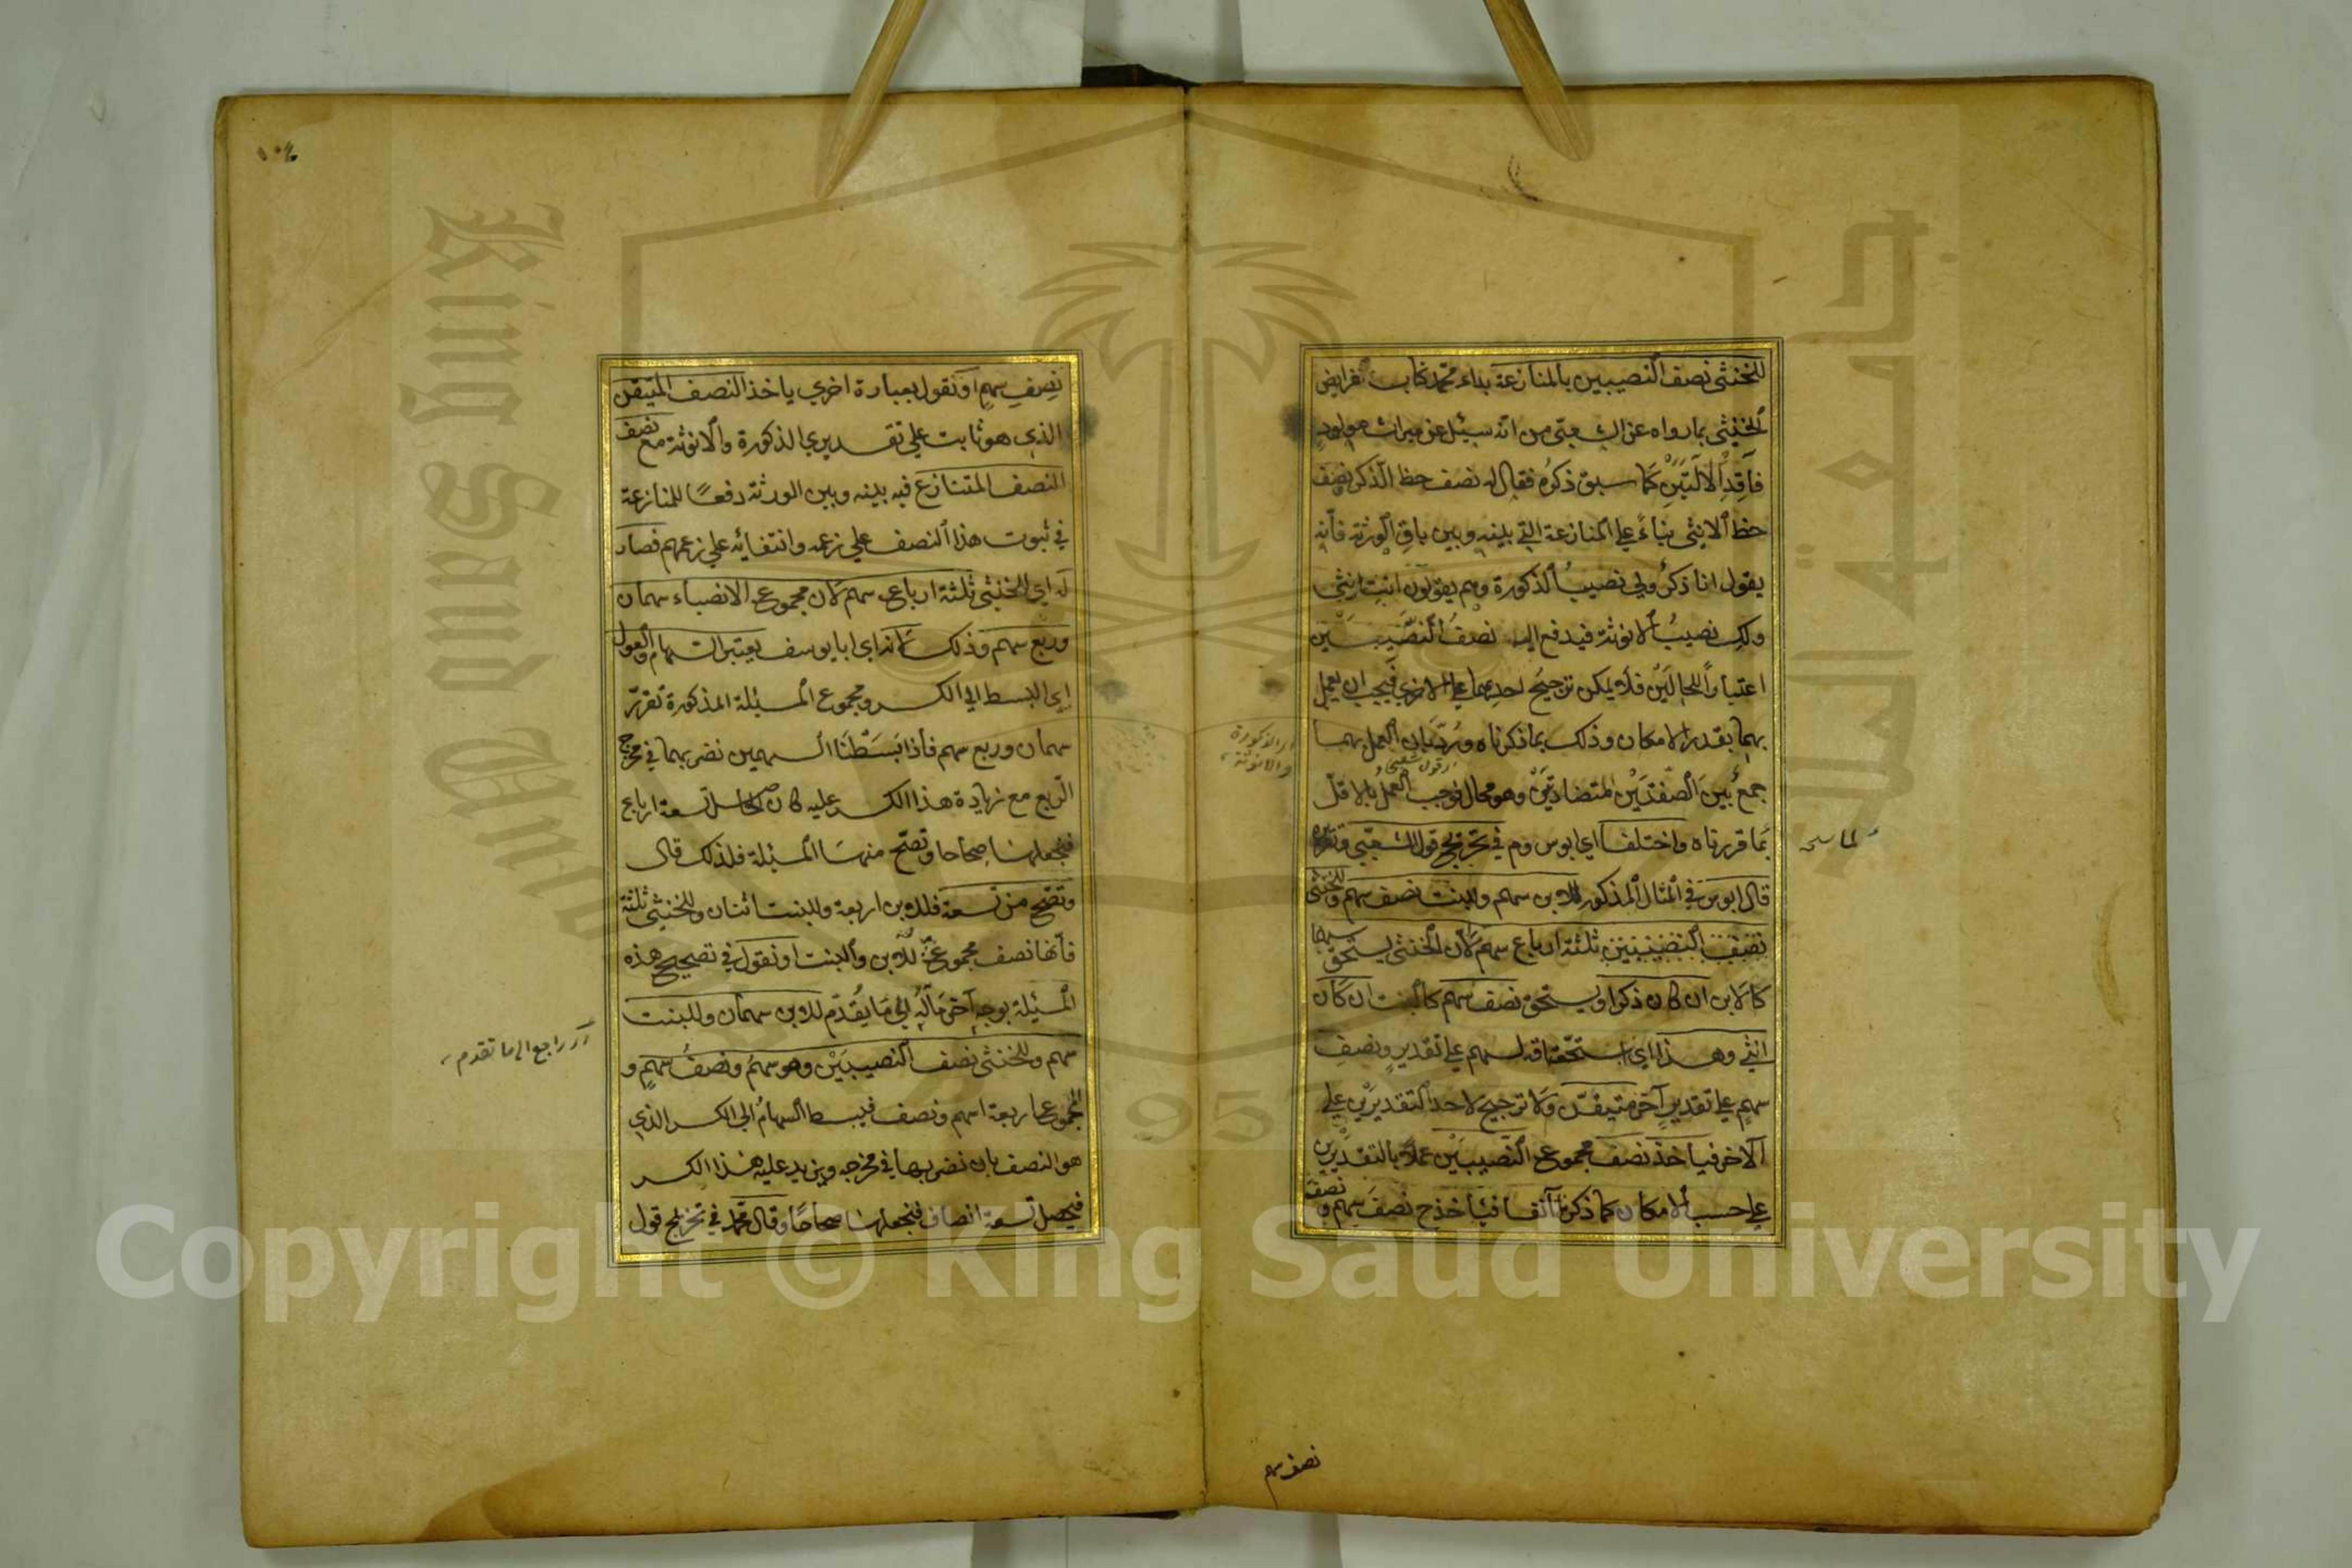 للخنثى نصف النصيبين بالمنازعة بداء محمد كتاب فرايض
الخنثى بما رواه عن الشعبى من انه سئل عن ميراث مولود
فاقد الالتين كما سبق ذكره فقال له نصف حظ الذكر نصف
حظ الانثى بناء على المنازعة التي بينه وبين باقى الورثة فانه
يقول انا ذكر ولي نصيب الذكورة وهم يقولون انت انثى
ولك نصيب الانوثة فيدفع اليه نصف النصيبين
اعتبارا للحالين فلا يمكن ترجيح احديهما على الاخرى فيجب ان يعمل
بهما بقدر الامكان وذلك بما ذكرناه ورد بان العمل بهما
جمع بين الصفتين المتضادتين وهو محال فوجب العمل بالاقل
بما قررناه واختلفا اي ابوس وم في تخريج قول الشعبي
قال ابوس في المثال المذكور للابن سهم وللبنت نصف سهم وللخنثى
نصف النصيبين ثلثة ارباع سهم لان الخنثى يستحق سهما
كالابن ان كان ذكرا ويستحق نصف سهم كالبنت ان كان
انثى وهذا اي استحقاقه لسهم على تقدير ونصف
سهم على تقدير آخر متيقن ولا ترجيح لاحد التقديرين على
الآخر فياخذ نصف مجموع النصيبين عملا بالتقديرين
على حسب الامكان كما ذكرنا آنفا فيأخذ ح نصف سهم ونصف
اى الذكورة
والانوثة
قول شعبى
نصف سهم
١٠٤
نصف سهم او نقول بعبارة اخرى ياخذ النصف المتيقن
الذي هو ثابت على تقديري الذكورة والانوثة مع نصف
النصف المتنازع فيه بينه وبين الورثة دفعا للمنازعة
في ثبوت هذا النصف على زعمه وانتفائه على زعمهم فصار
له اي للخنثى ثلثة ارباع سهم لان مجموع الانصباء سهمان
وربع سهم وذلك لانه اي ابا يوسف يعتبر السهام والعول
اي البسط الى الكسر ومجموع المسئلة المذكورة تقرر
سهمان وربع سهم فاذا بسطنا السهمين نضربهما في مخرج
الربع مع زيادة هذا الكسر عليه كان الحاصل تسعة ارباع
فنجعلها صحاحا وتصح منها المسئلة فلذلك قال
وتصح من تسعة فللابن اربعة وللبنت اثنان وللخنثى ثلثة
فانها نصف مجموع للابن والبنت او نقول في تصحيح هذه
المسئلة بوجه آخر مآله الى ما يقدم للابن سهمان وللبنت
سهم وللخنثى نصف النصيبين وهو سهم ونصف سهم و
المجموع اربعة اسهم ونصف فيبسط السهام الى الكسر الذي
هو النصف بان نضربها في مخرجه ويزيد عليه هذا الكسر
فيحصل تسعة انصاف فنجعلها صحاحا وقال محمد في تخريج قول
راجع الى ما تقدم
جامعة الملك سعود
King Saud University
1957
Copyright © King Saud University